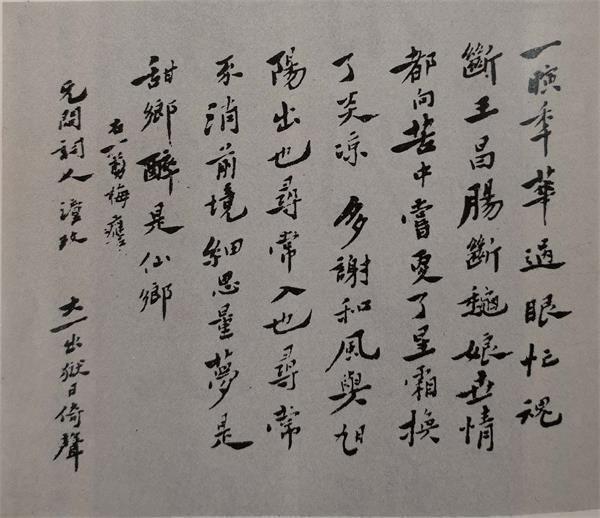 一瞚年華過眼忙魂
斷王昌腸斷龝娘世情
都向苦中嘗更了星霜換
了炎凉 多謝和風與旭
陽出也尋常入也尋常
不消前境細思量夢是
甜鄉醉是仙鄉
右一翦梅
詞人 政 大一出獄日倚聲